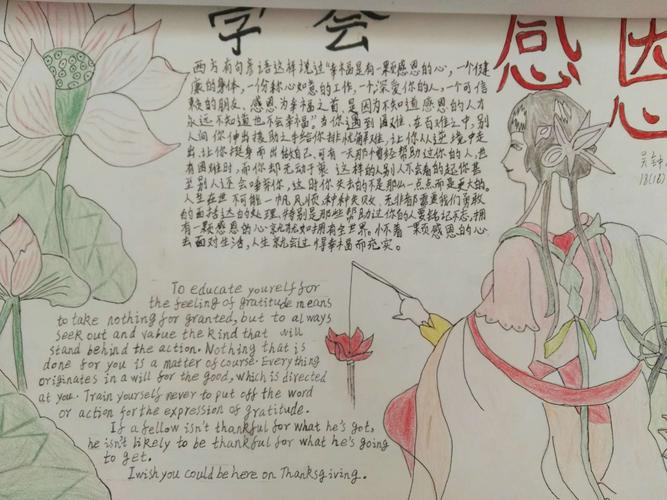 学会感恩
西方有句谚语这样说过"幸福是有一颗感恩的心，一个健
康的身体，一份称心如意的工作，一个深爱你的人，一个可信
赖的朋友。感恩为幸福之前，是因为不知道感恩的人才
永远不知道也不会幸福"。当你遇到困难，在百难之中，别
人向你伸出援助之手给你排忧解难，让你从逆境中走
出，让你挺身而出做自己，可有一天那个曾经帮助过你的人，也
有困难时，而你却无动于衷 这样的别人不会看的起你甚
至别人还会唾弃你，这时你失去的不是那么一点点而是更大的。
人生在世不可能一帆风顺，种种失败、无
的面
有一颗感恩的心
去面对生活，人生就会过得幸福而充实。
To educate yourelf for
the feeling of gratitude means
to take nothing for granted, but to always
seek out and value the kind that will
stand behind the action. Nothing that is
done for you is a matter of course. Everything
originates in a will for the good, which is directed
at you. Train yourself never to put off the word
or action for the expression of gratitude.
If a fellow isn't thankful for what he's got,
he isn't likely to be thankful for what he's going
to get.
I wish you could be here on Thanksgiving.